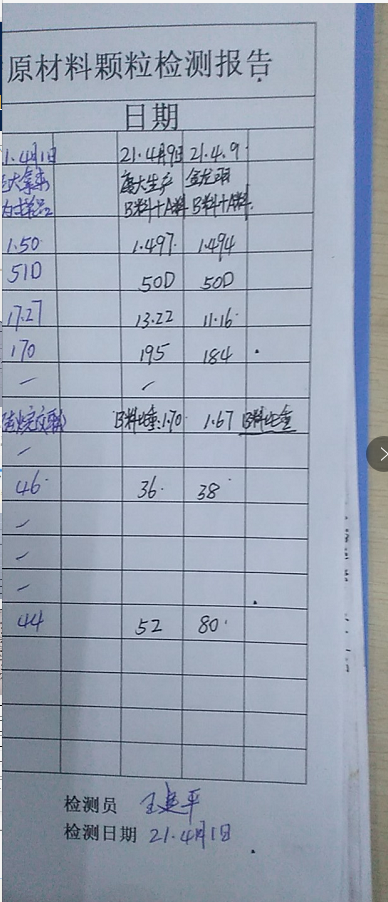 原材料颗粒检测报告
日期
1.4月1日 21.4月9日 21.4.9.
大生产
B料+A料 B料+A料.
1.50 1.497. 1.494
51D 50D 50D
17.27 13.22 11.16
170 195 184
— —
B料比重:1.70 1.67 B料比重
—
46 36. 38
—
—
—
44 52 80
检测员 王建平
检测日期 21.4月1日